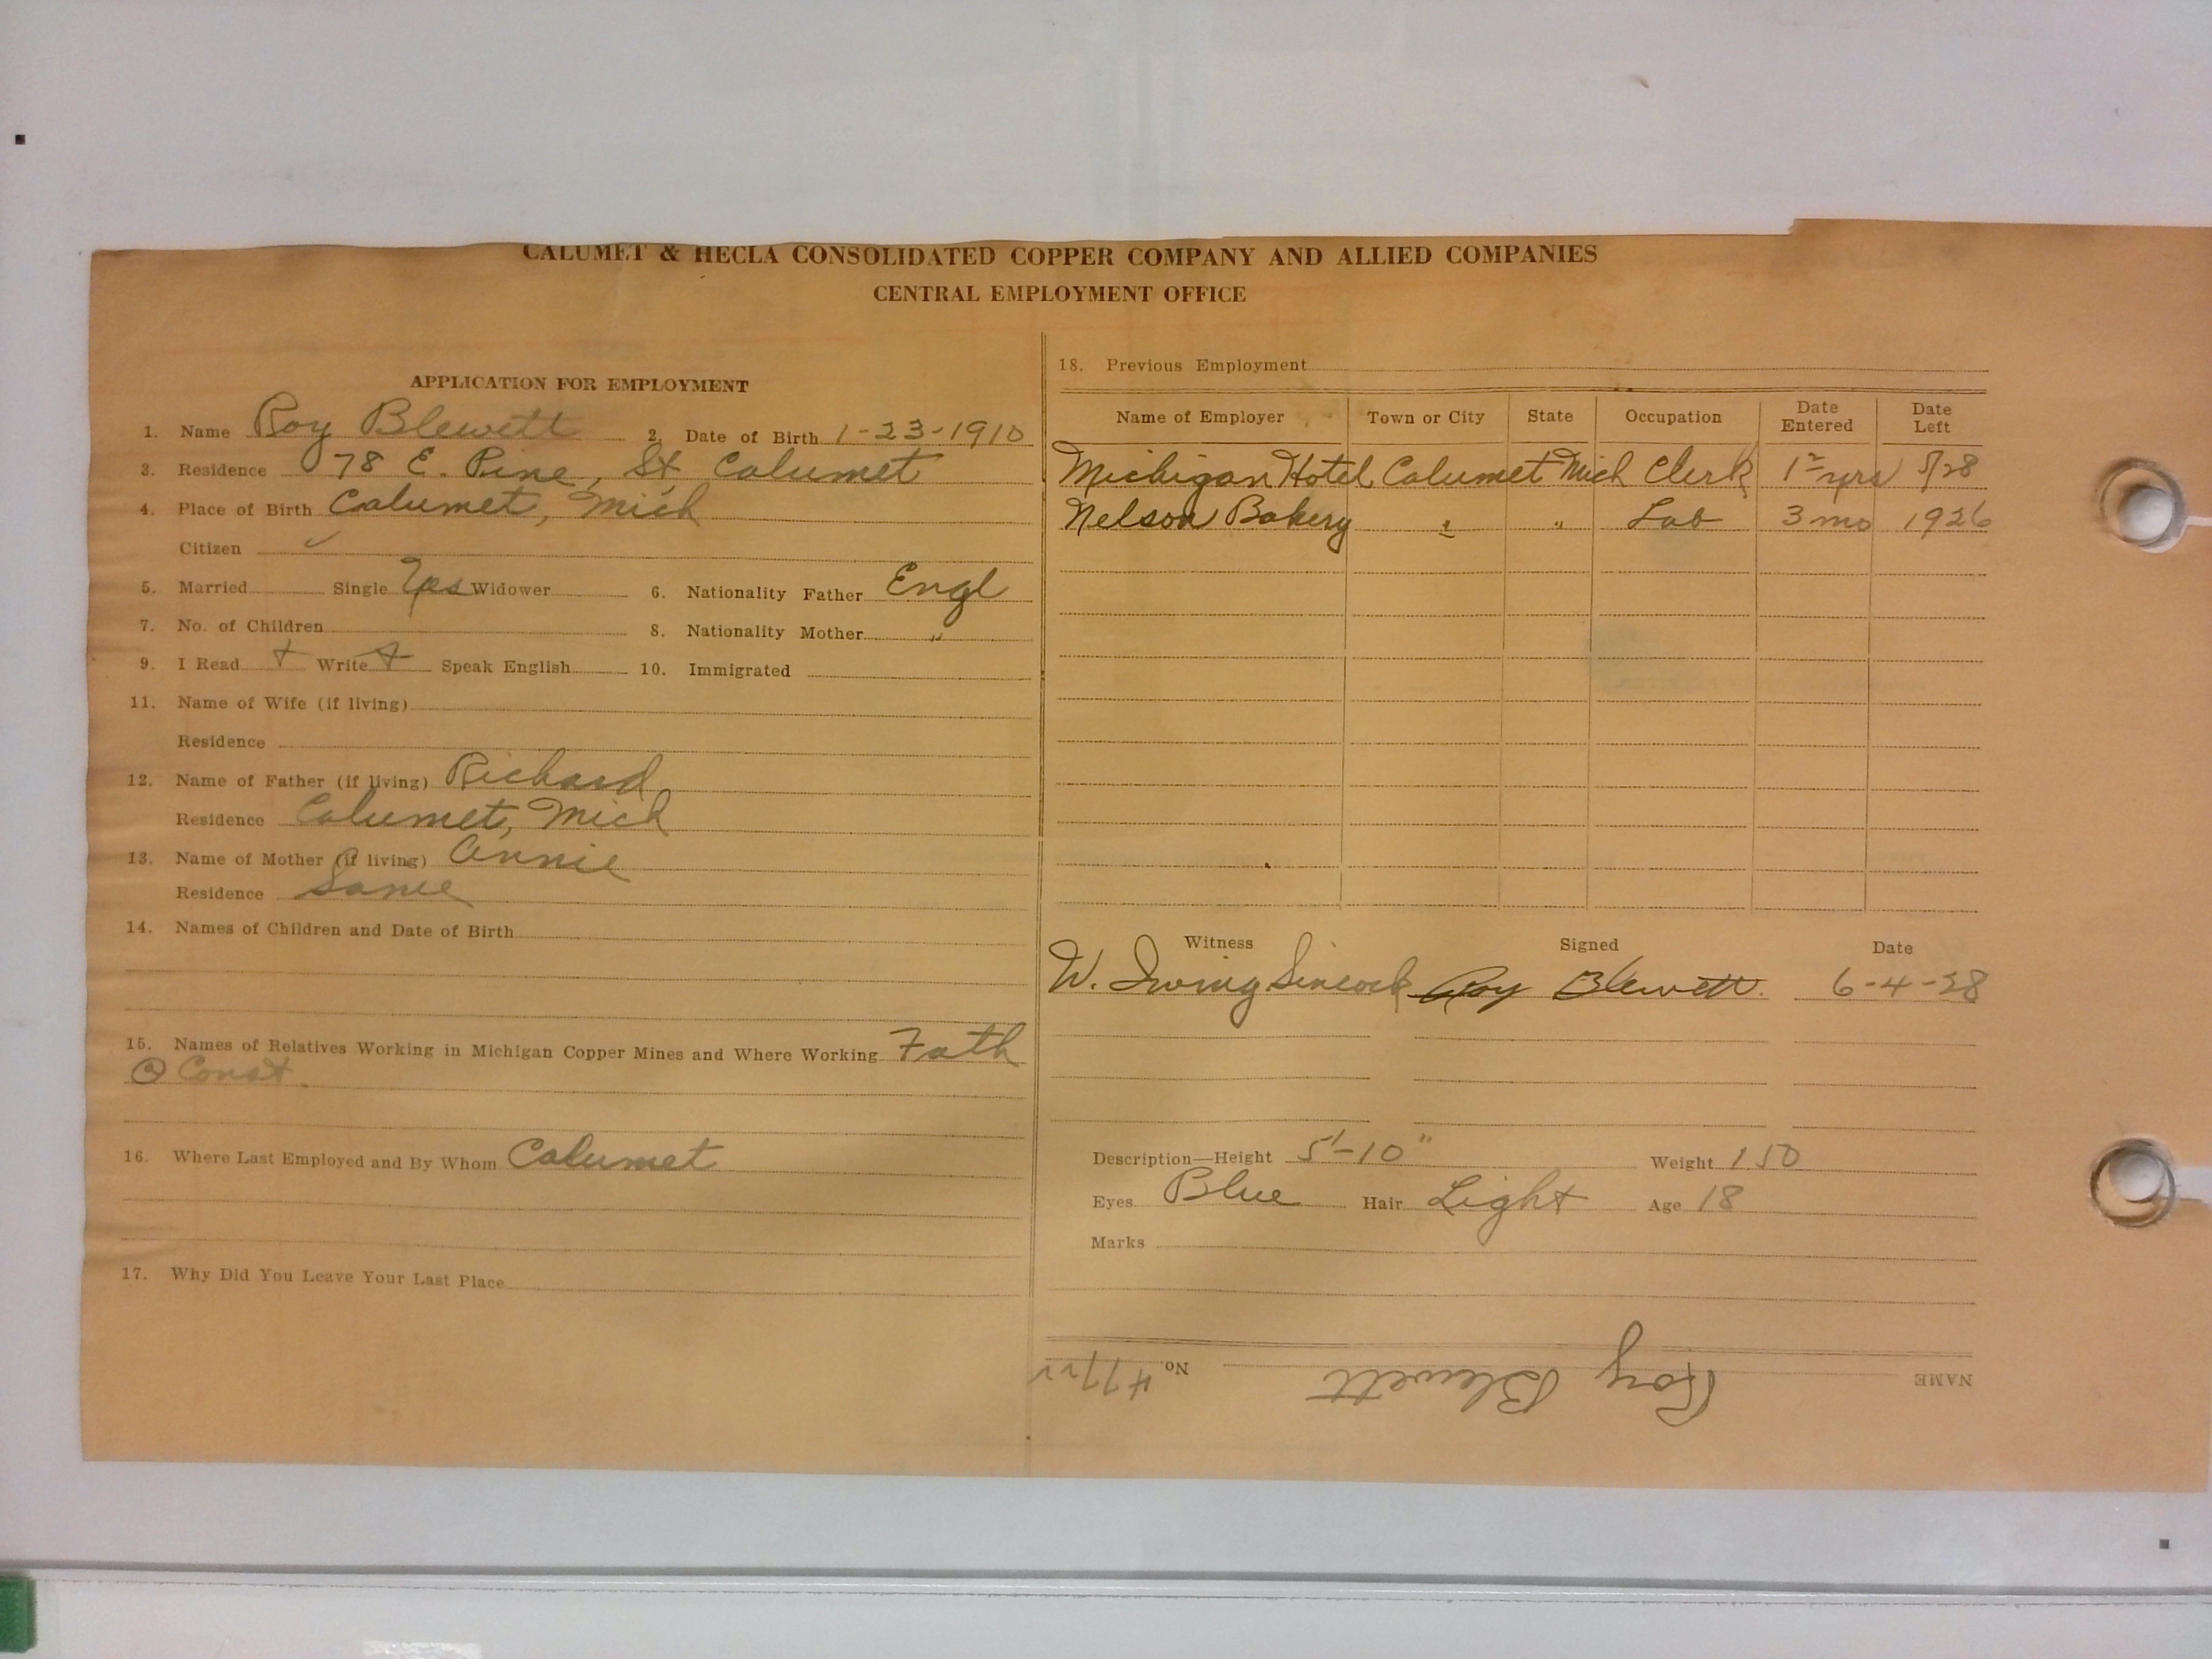 CALUMET & HECLA CONSOLIDATED COPPER COMPANY AND ALLIED COMPANIES
CENTRAL EMPLOYMENT OFFICE
APPLICATION FOR EMPLOYMENT
1. Name Roy Blewett 2. Date of Birth 1-23-1910
3. Residence 78 E. Pine, St Calumet
4. Place of Birth Calumet, Mich
Citizen ✓
5. Married Single Yes Widower 6. Nationality Father Engl
7. No. of Children 8. Nationality Mother "
9. I Read + Write + Speak English 10. Immigrated
11. Name of Wife (if living)
Residence
12. Name of Father (if living) Richard
Residence Calumet, Mich
13. Name of Mother (if living) Annie
Residence Same
14. Names of Children and Date of Birth
15. Names of Relatives Working in Michigan Copper Mines and Where Working Fath
Const.
16. Where Last Employed and By Whom Calumet
17. Why Did You Leave Your Last Place
18. Previous Employment
Name of Employer Town or City State Occupation Date Entered Date Left
Michigan Hotel Calumet Mich Clerk yrs 5/28
Nelson Bakery " " Lab 3 mo 1926
Witness Signed Date
W. Irving Sincock Roy Blewett. 6-4-28
Description—Height 5'-10" Weight 150
Eyes Blue Hair Light Age 18
Marks
NAME Roy Blewett No.